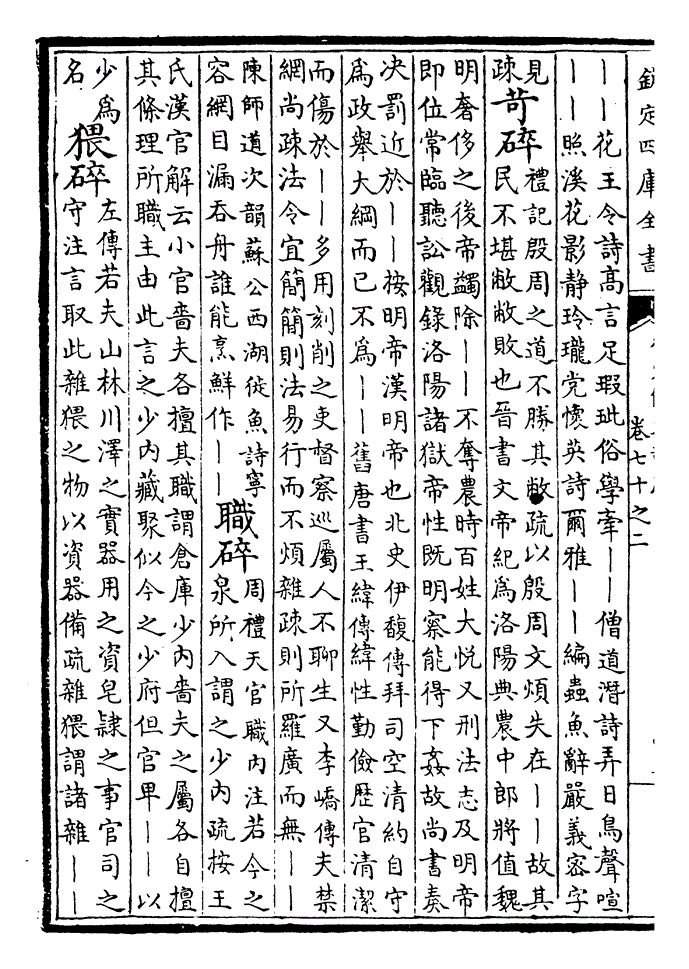 欽定四庫全書
卷七十之二
——花王令詩高言足瑕玼俗學牽——僧道潛詩弄日鳥聲喧
——照溪花影静玲瓏党懷英詩爾雅——編蟲魚辭嚴義密字
見
疎
苛碎
禮記殷周之道不勝其敝疏以殷周文煩失在——故其
民不堪敝敝敗也晉書文帝紀為洛陽典農中郎將值魏
明奢侈之後帝蠲除——不奪農時百姓大悦又刑法志及明帝
即位常臨聽訟觀錄洛陽諸獄帝性既明察能得下姦故尚書奏
決罰近於——按明帝漢明帝也北史伊馥傳拜司空清約自守
為政舉大綱而已不為——舊唐書王緯傳緯性勤儉歴官清潔
而傷於——多用刻削之吏督察巡屬人不聊生又李嶠傳夫禁
網尚疎法令宜簡簡則法易行而不煩雜疎則所羅廣而無——
陳師道次韻蘇公西湖徙魚詩寧
容網目漏吞舟誰能烹鮮作——
職碎
周禮天官職内注若今之
泉所入謂之少内疏按王
氏漢官解云小官嗇夫各擅其職謂倉庫少内嗇夫之屬各自擅
其條理所職主由此言之少内藏聚似今之少府但官卑——以
少為
名
猥碎
左傳若夫山林川澤之實器用之資皂隸之事官司之
守注言取此雜猥之物以資器備疏雜猥謂諸雜——